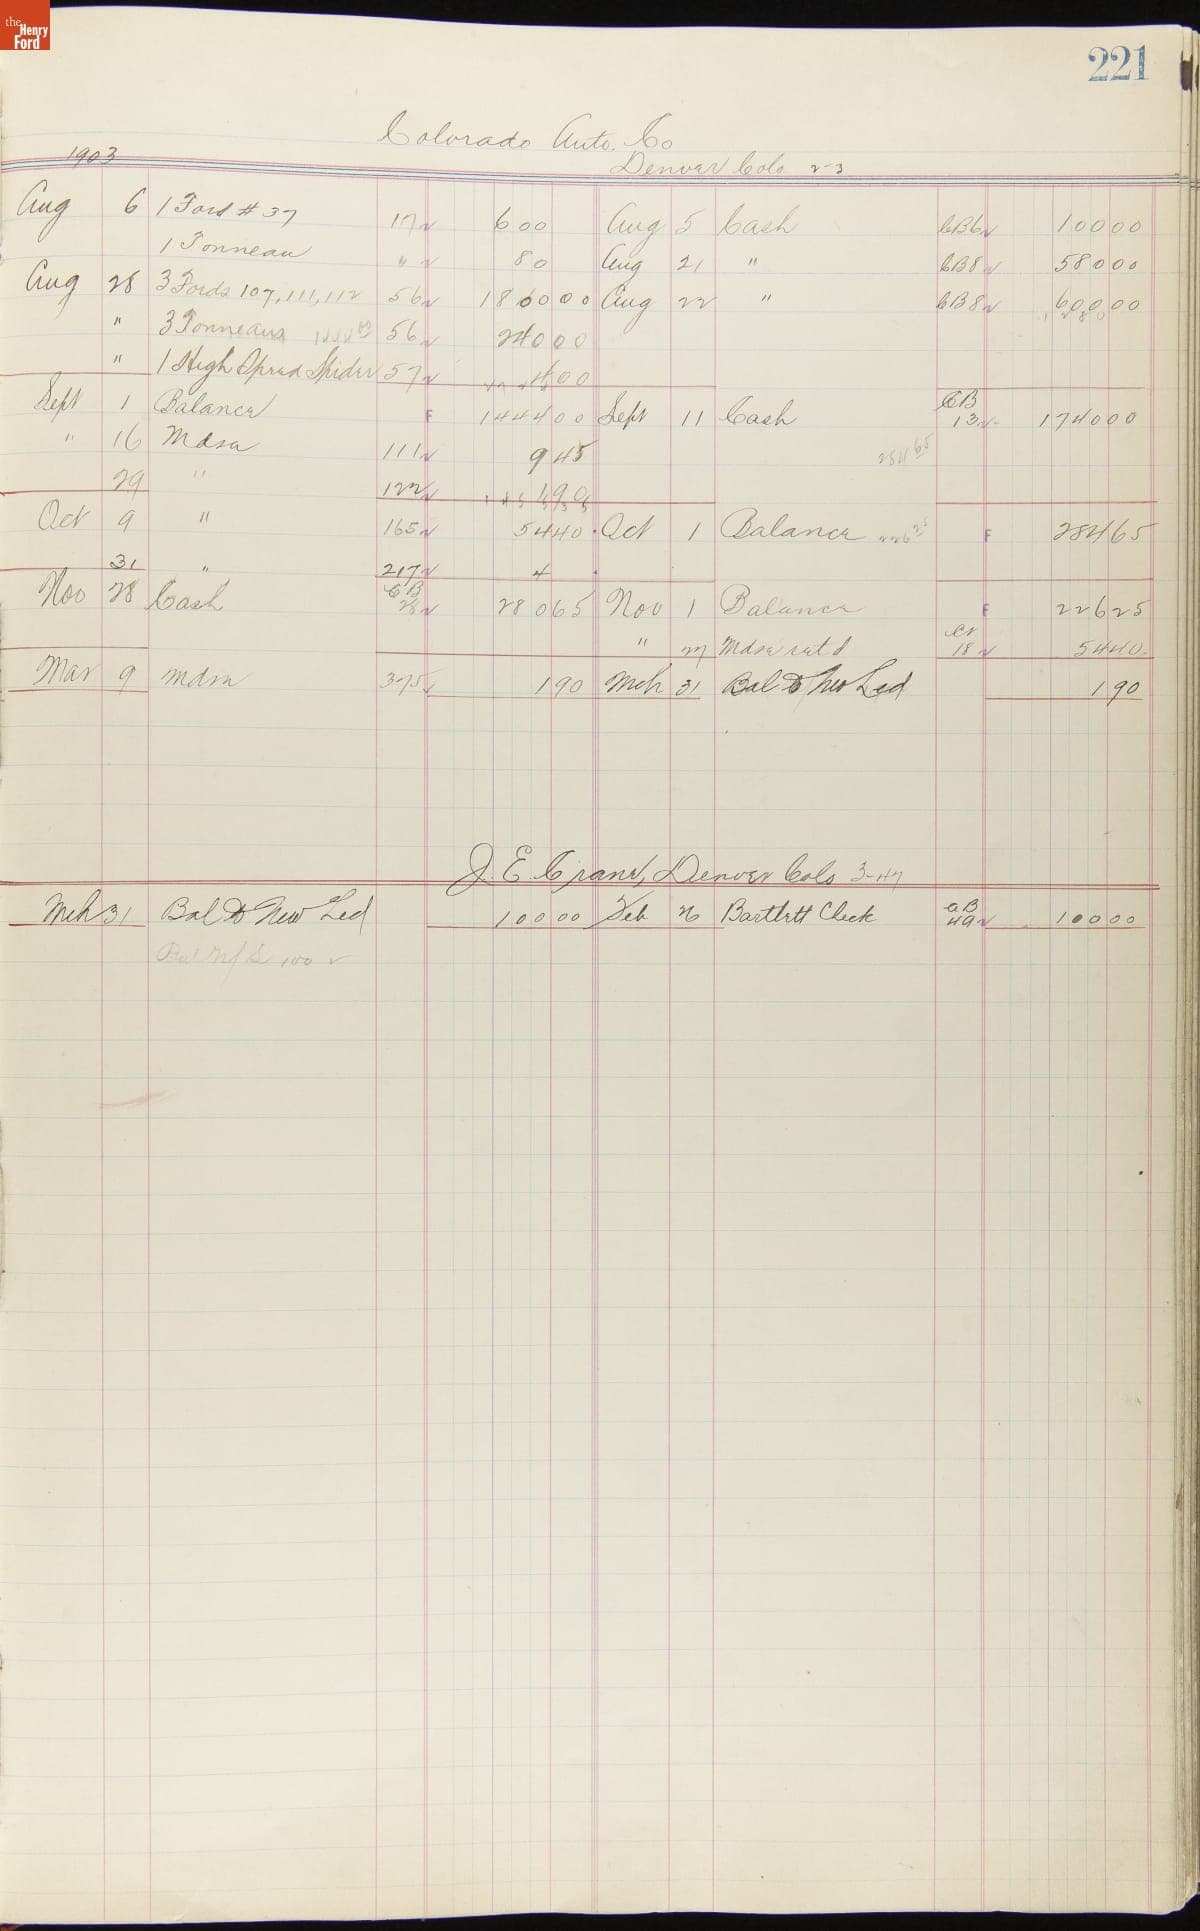 the Henry Ford
221
Colorado Auto. Co
1903 Denver Colo 2-3
Aug 6 1 Ford # 37 17 600 Aug 5 Cash CB6 10000
1 Tonneau " 80 Aug 21 " CB8 58000
Aug 28 3 Fords 107, 111, 112 56 180000 Aug 22 " CB8 60000
" 3 Tonneaus 1444 00 56 24000 1280
" 1 High Spread Spider 57 400
Sept 1 Balance F 144400 Sept 11 Cash CB 13 174000
" 16 Mdse 111 945 284 65
29 " 122 190
Oct 9 " 165 5440 Oct 1 Balance 226 25 F 28465
31 " 217 4
Nov 28 Cash CB 28 28065 Nov 1 Balance F 22625
" 27 Mdse ret'd Cr 18 5440
Mar 9 Mdse 375 190 Mch 31 Bal to New Led 190
J. E. Crane, Denver Colo 3-47
Mch 31 Bal to New Led 10000 Feb 26 Bartlett Check CB 49 10000
100